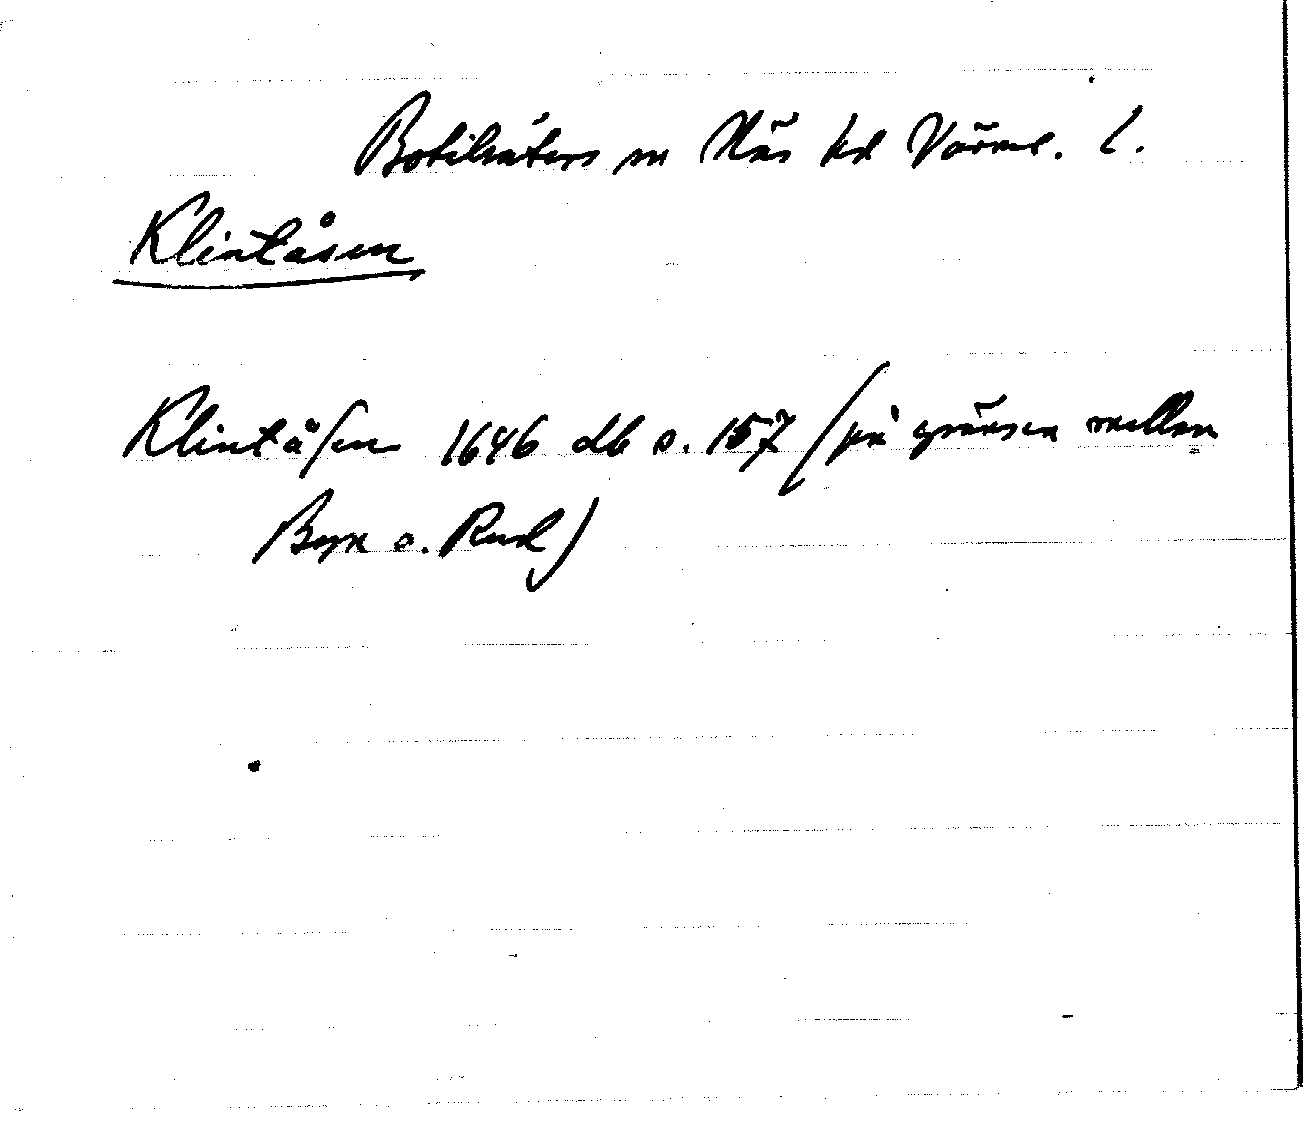 Botilsäters sn Näs hd Värml. l.
Klintåsen
Klintåsen 1646 db s. 157 (på gränsen mellan
Byn o. Rud)